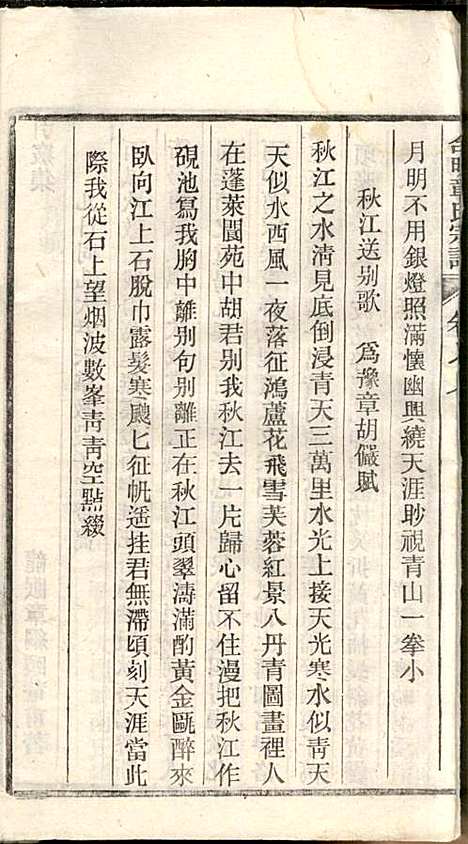 月明不用銀燈照滿懷幽興繞天涯眇視青山一拳小
秋江送别歌 爲豫章胡儼賦
秋江之水清見底倒浸青天三萬里水光上接天光寒水似靑天
天似水西風一夜落征鴻蘆花飛雪芙蓉紅景八丹青圖畫裡人
在蓬萊閬苑中胡君别我秋江去一片歸心留不住漫把秋江作
硯池寫我胸中離别句别離正在秋江頭翠濤滿酌黃金甌醉來
臥向江上石脫巾露髮寒颼匕征帆遥挂君無滯頃刻天涯當此
際我從石上望烟波數峯靑靑空點綴